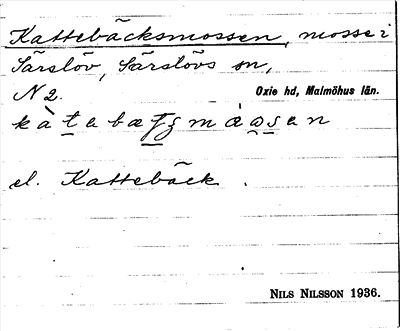 Kattebäcksmossen, mosse i
Särslöv, Särslövs sn,
N 2. Oxie hd, Malmöhus län.
el. Kattebäck.
NILS NILSSON 1936.